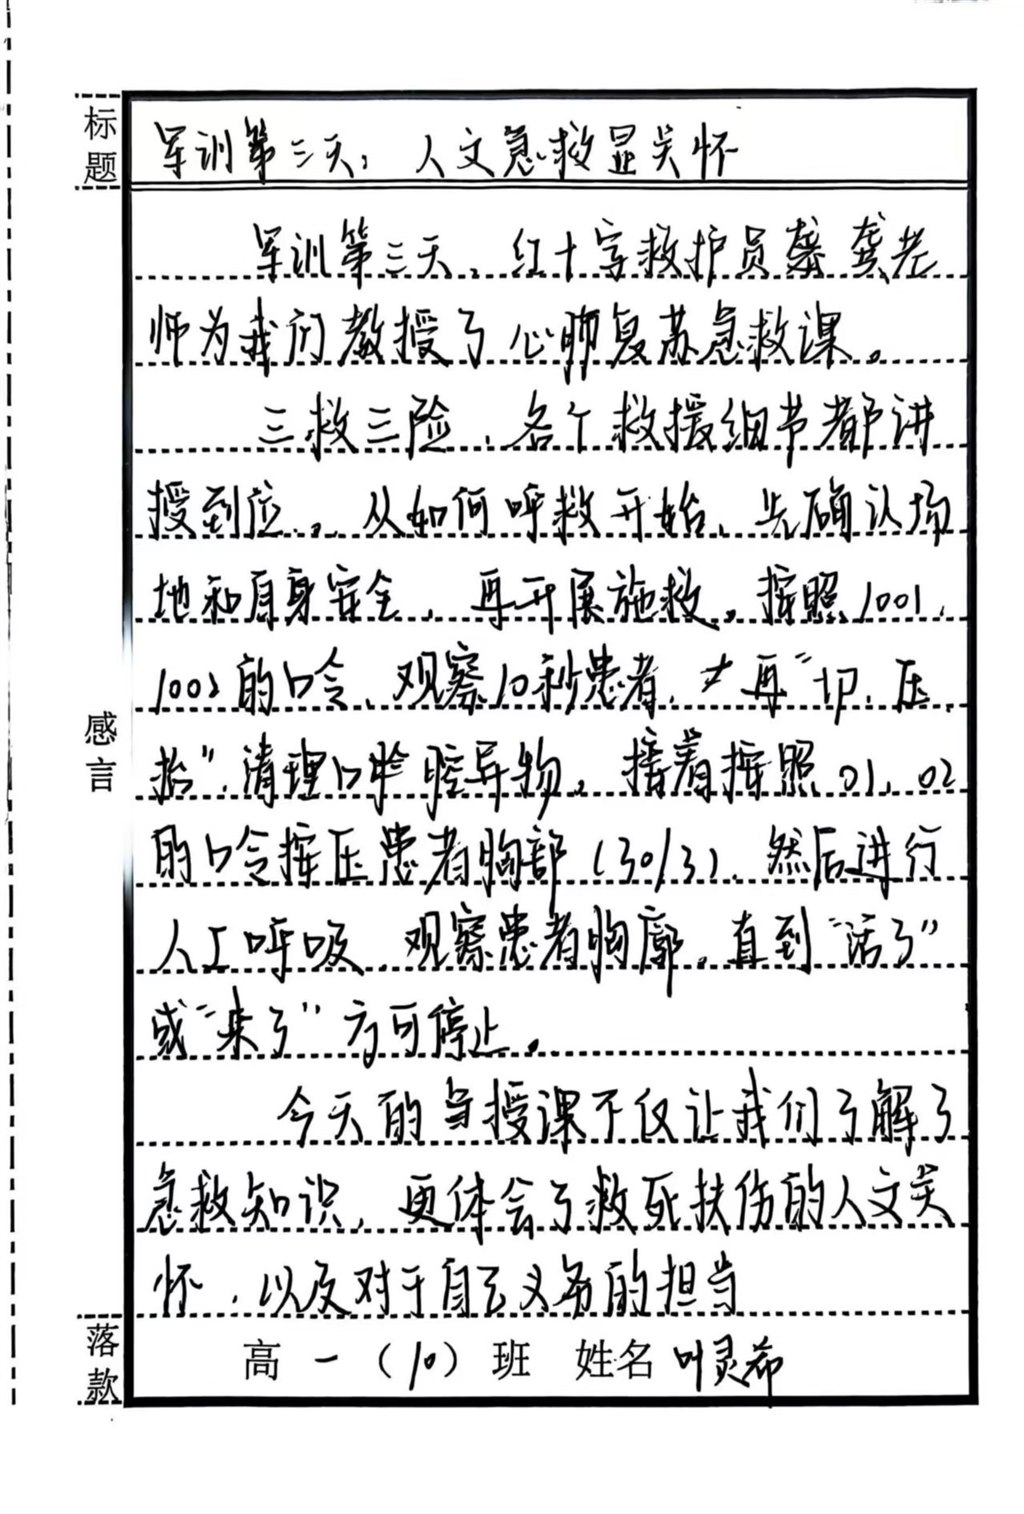 标题
军训第三天：人文急救显关怀
军训第三天，红十字救护员 龚老
师为我们教授了心肺复苏急救课。
三救三险，各个救援细节都讲
授到位。从如何呼救开始，先确认场
地和自身安全，再开展施救。按照1001，
1002的口令，观察10秒患者，再“切、压、
抬”，清理口腔异物。接着按照01、02
的口令按压患者胸部（30/3），然后进行
人工呼吸，观察患者胸廓，直到“活了”
或“来了”方可停止。
今天的授课不仅让我们了解了
急救知识，更体会了救死扶伤的人文关
怀，以及对于自己义务的担当
感言
落款
高一（10）班 姓名 叶灵希